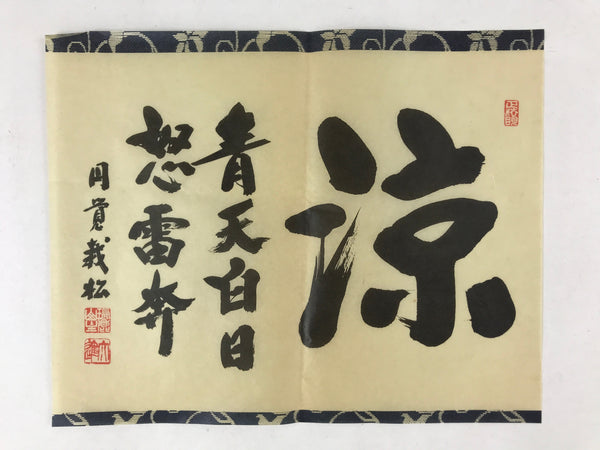 涼
青天白日
怒雷奔
円覚栽松